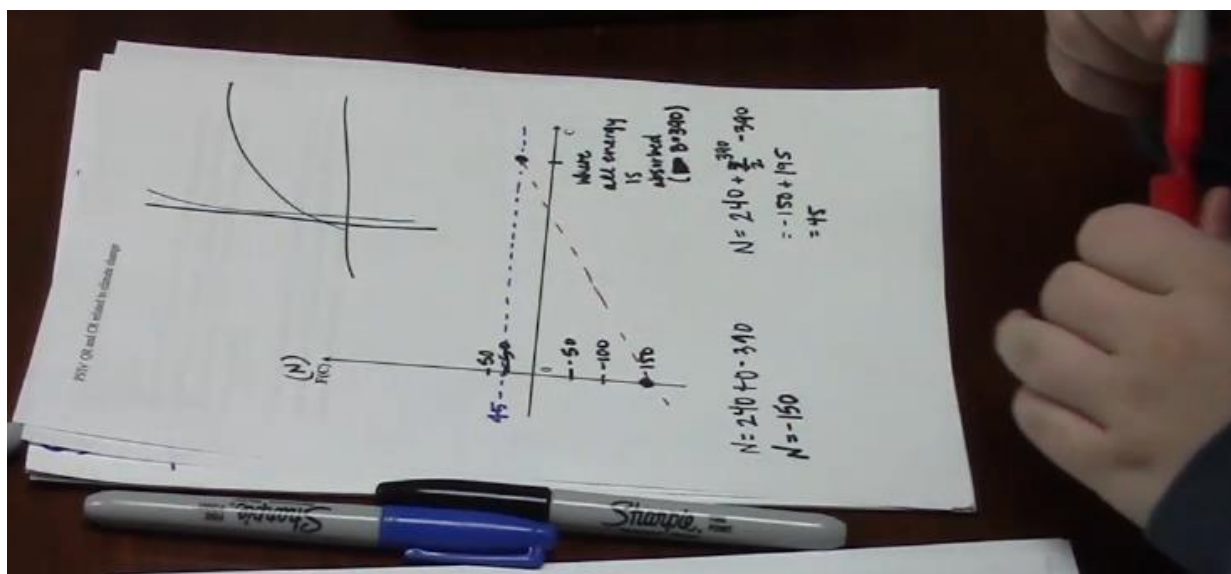 PSTs' QR and CR related to climate change
(N)
F(C)
50
45
0
-50
-100
-150
C
Where
all energy
is
absorbed
(B=390)
N=240+0-390
N=-150
N=240+390/2-390
=-150+195
=45
Sharpie
Sharpie